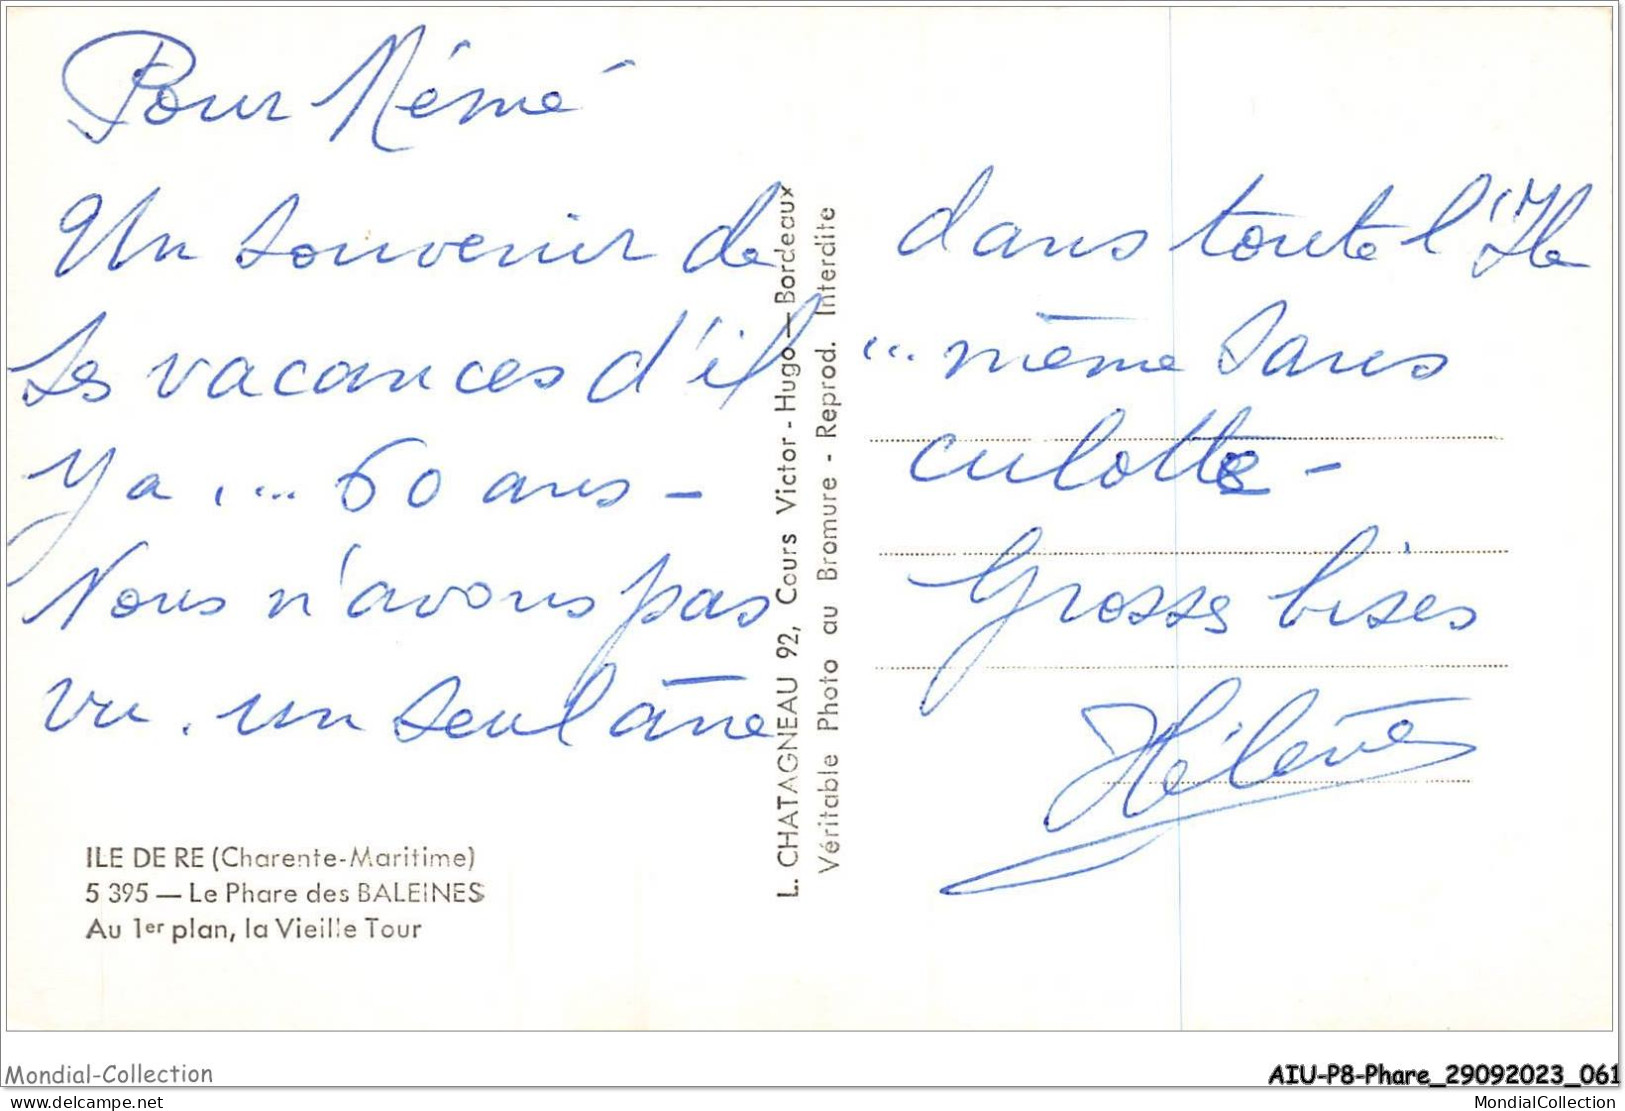 Pour Mémé
Un souvenir de
ses vacances d'il
y a .... 60 ans -
Nous n'avons pas
vu. un seul âne
dans toute l'Ile
... même sans
culotte -
Grosses bises
Hélène
ILE DE RE (Charente-Maritime)
5 395 — Le Phare des BALEINES
Au 1er plan, la Vieille Tour
L. CHATAGNEAU 92, Cours Victor - Hugo — Bordeaux
Véritable Photo au Bromure - Reprod. Interdite
Mondial-Collection
AIU-P8-Phare_29092023_061
delcampe.net
MondialCollection